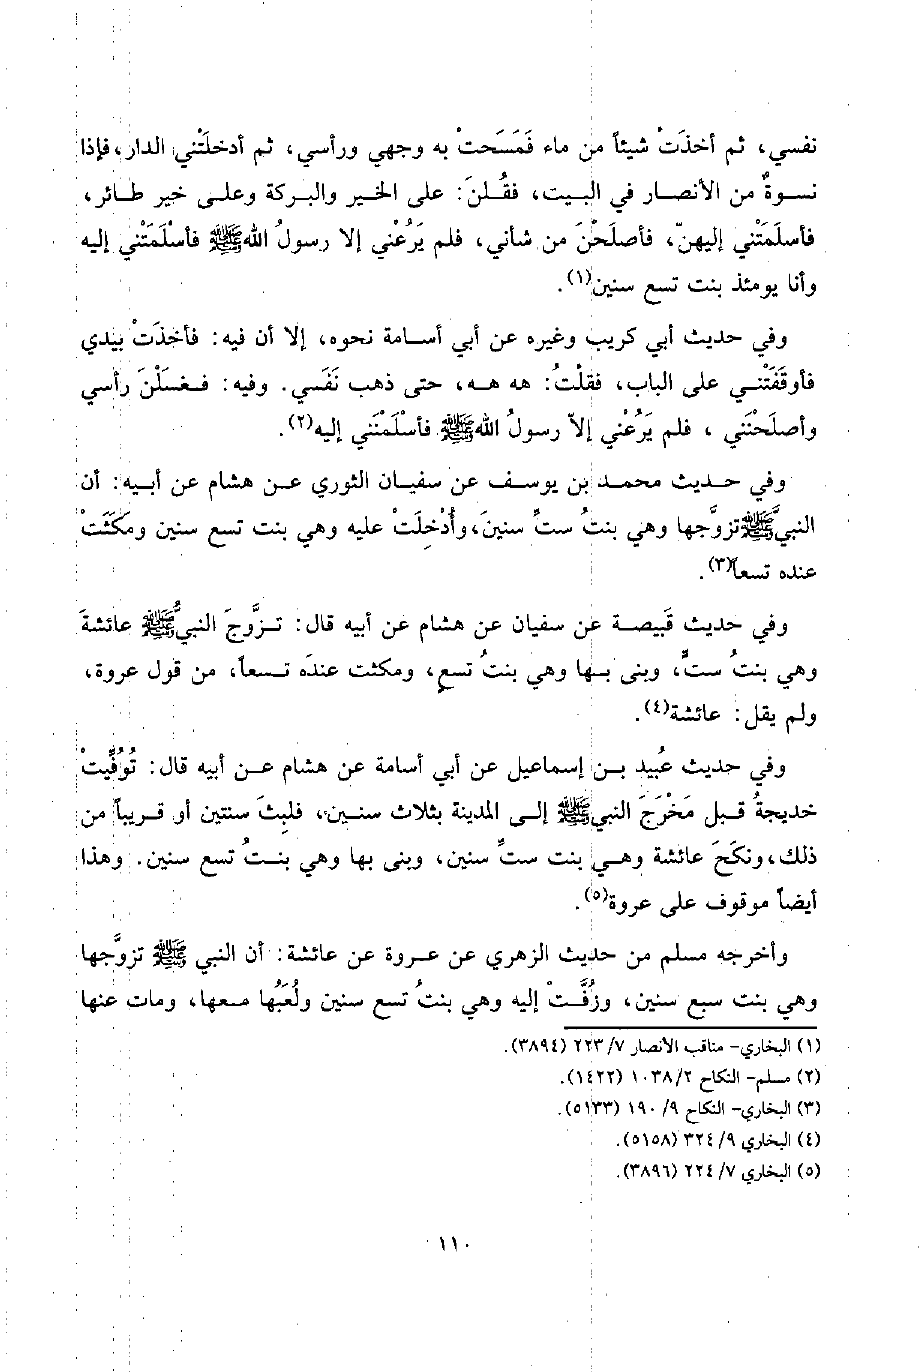 نفسي، ثم أخذَتْ شيئاً من ماء فَمَسَحتْ به وجهي ورأسي، ثم أدخلَتْني الدار، فإذا
نسوةٌ من الأنصار في البيت، فقُلنَ: على الخير والبركة وعلى خير طائر،
فأسلَمَتْني إليهنّ، فأصلَحْنَ من شأني، فلم يَرُعْني إلا رسولُ الله ﷺ فأسْلَمَتْني إليه
وأنا يومئذ بنت تسع سنين(١).
وفي حديث أبي كريب وغيره عن أبي أسامة نحوه، إلا أن فيه: فأخذَتْ بيدي
فأوقَفَتْني على الباب، فقلْتُ: هه هه، حتى ذهب نَفَسي. وفيه: فغسَلْنَ رأسي
وأصلَحْنَني ، فلم يَرُعْني إلاّ رسولُ الله ﷺ فأسْلَمْنَني إليه(٢).
وفي حديث محمد بن يوسف عن سفيان الثوري عن هشام عن أبيه: أن
النبيَّ ﷺ تزوَّجها وهي بنتُ ستِّ سنينَ، وأُدْخِلَتْ عليه وهي بنت تسع سنين ومكَثَتْ
عنده تسعاً(٣).
وفي حديث قَبيصة عن سفيان عن هشام عن أبيه قال: تزوَّجَ النبيُّ ﷺ عائشةَ
وهي بنتُ ستٍّ، وبنى بها وهي بنتُ تسعٍ، ومكثت عندَه تسعاً، من قول عروة،
ولم يقل: عائشة(٤).
وفي حديث عُبيد بن إسماعيل عن أبي أسامة عن هشام عن أبيه قال: تُوُفِّيتْ
خديجةُ قبل مَخْرَجَ النبي ﷺ إلى المدينة بثلاث سنين، فلبِثَ سنتين أو قريباً من
ذلك، ونكَحَ عائشة وهي بنت ستِّ سنين، وبنى بها وهي بنتُ تسع سنين. وهذا
أيضاً موقوف على عروة(٥).
وأخرجه مسلم من حديث الزهري عن عروة عن عائشة: أن النبي ﷺ تزوَّجها
وهي بنت سبع سنين، وزُفَّتْ إليه وهي بنتُ تسع سنين ولُعَبُها معها، ومات عنها
(١) البخاري- مناقب الأنصار ٧/ ٢٢٣ (٣٨٩٤).
(٢) مسلم- النكاح ٢/ ١٠٣٨ (١٤٢٢).
(٣) البخاري- النكاح ٩/ ١٩٠ (٥١٣٣).
(٤) البخاري ٩/ ٣٢٤ (٥١٥٨).
(٥) البخاري ٧/ ٢٢٤ (٣٨٩٦).
١١٠